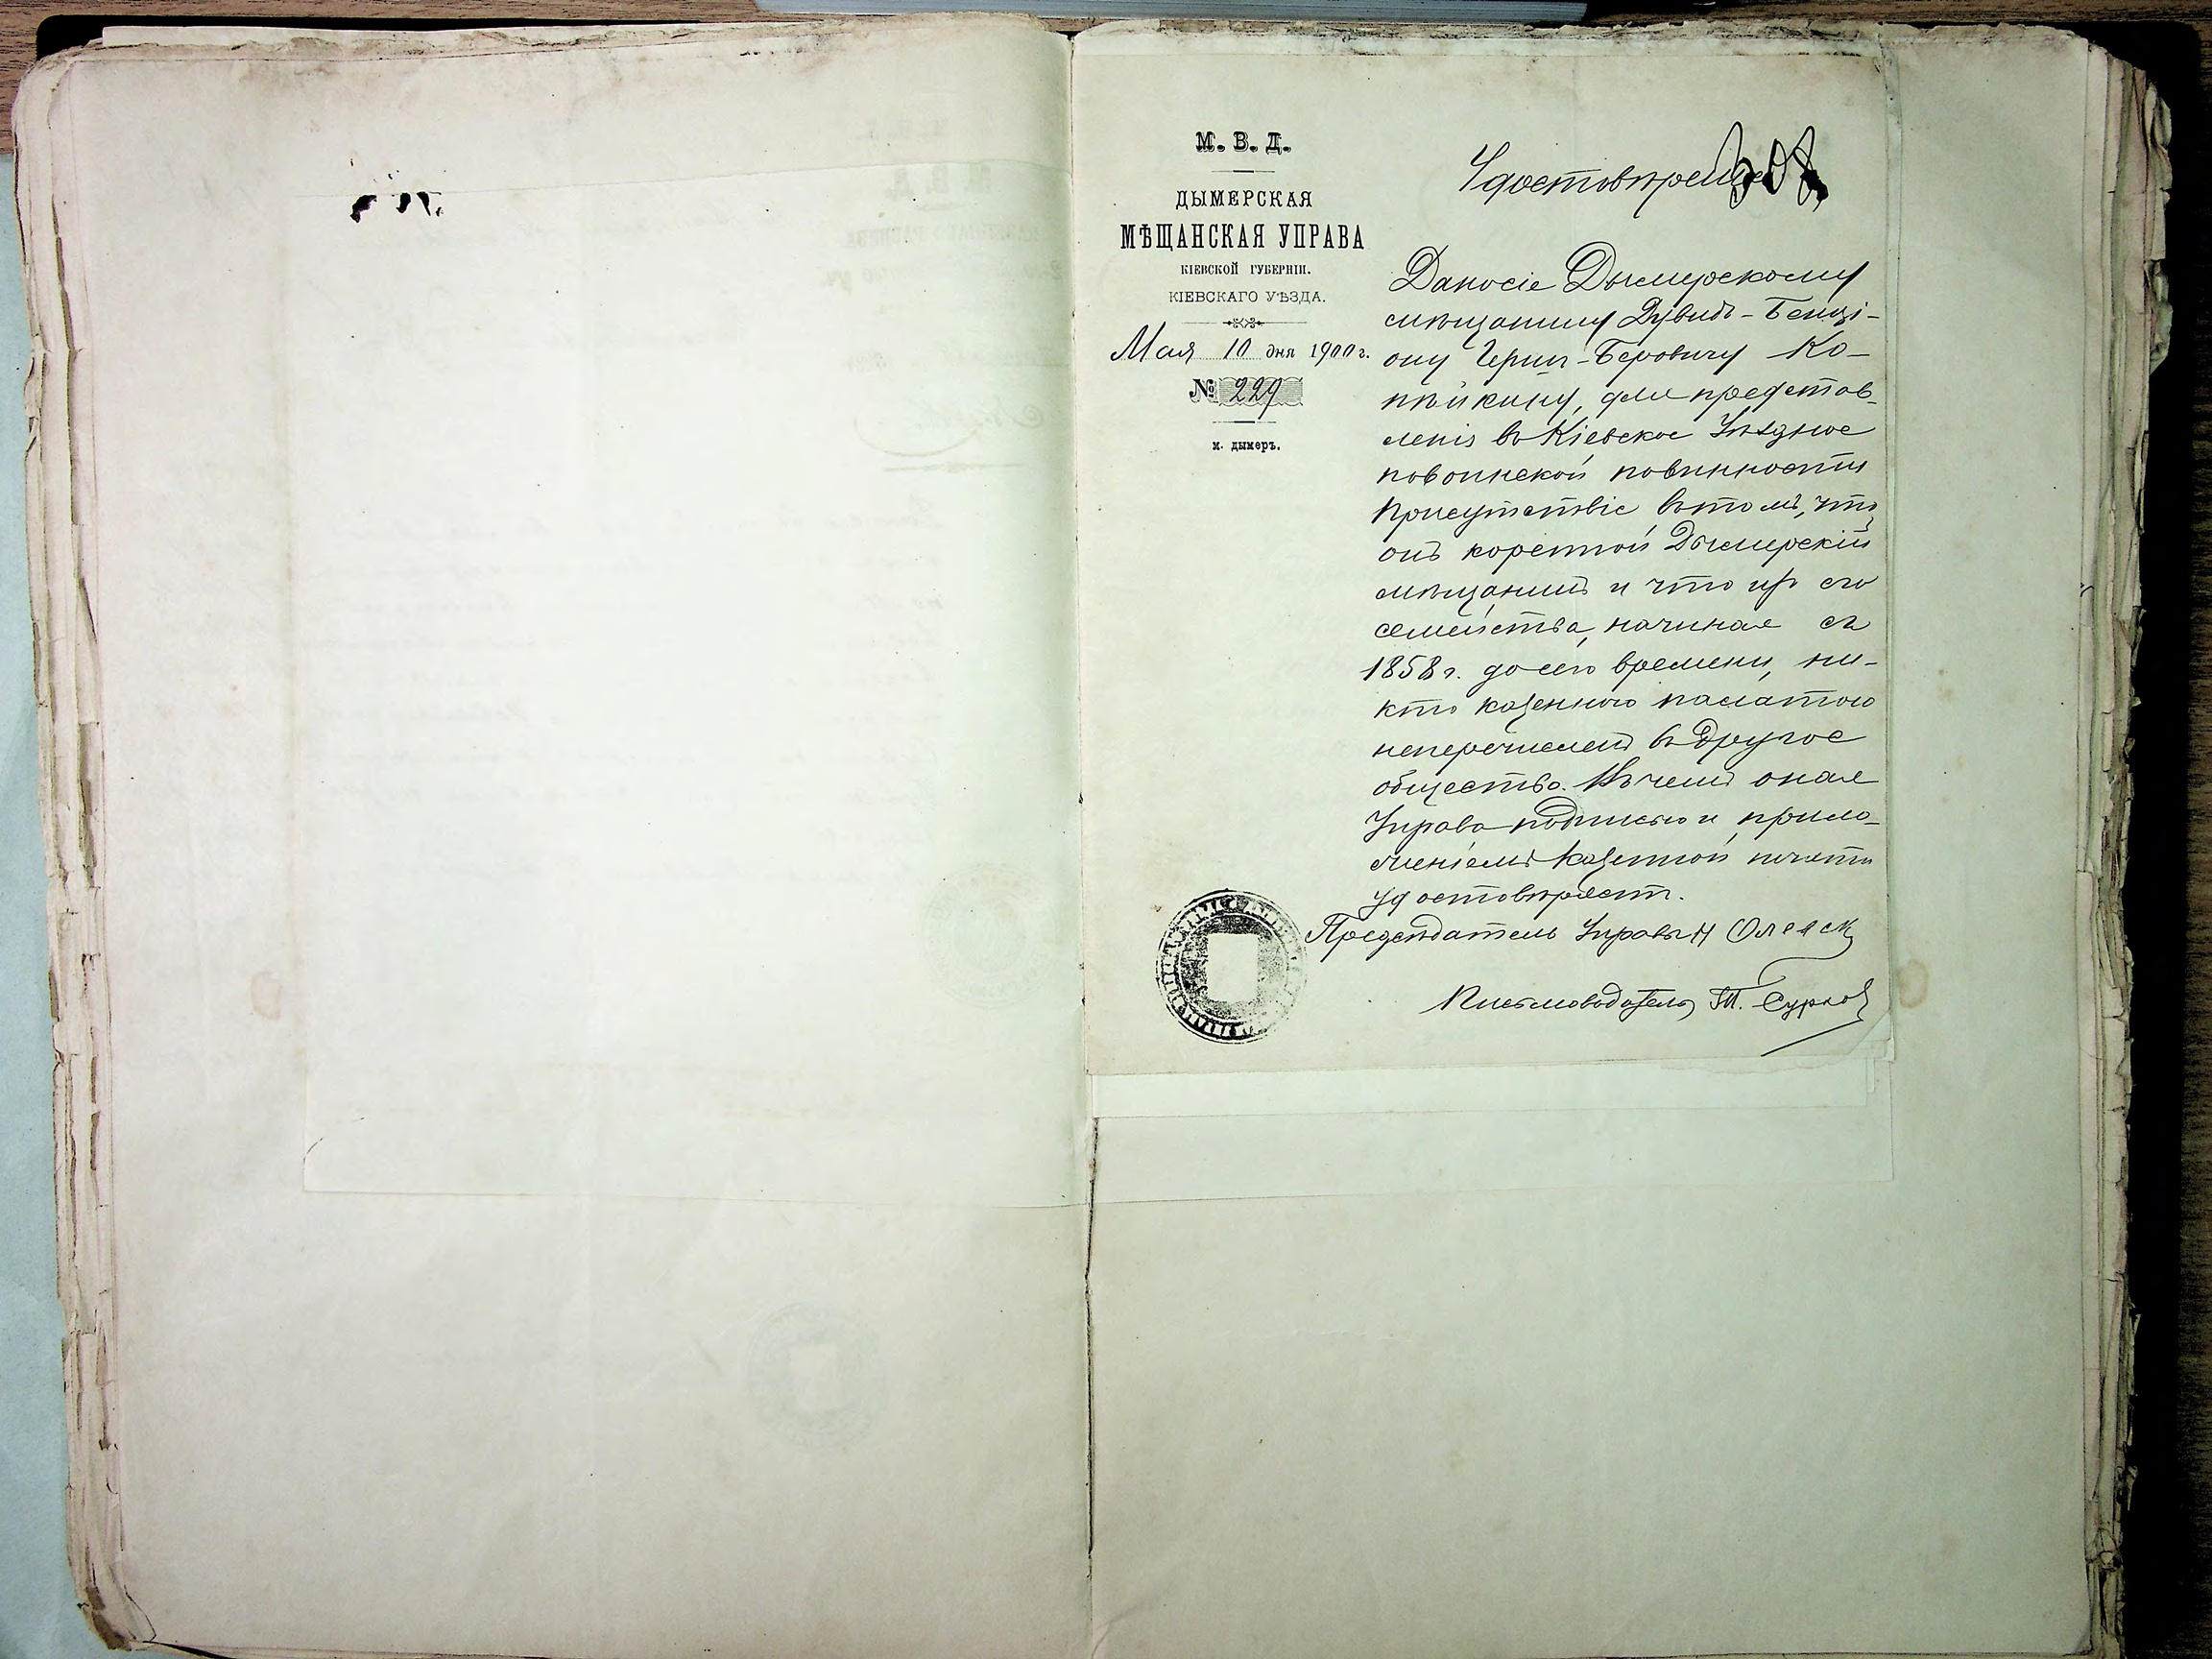 М. В. Д.
ДЫМЕРСКАЯ
МѢЩАНСКАЯ УПРАВА
КІЕВСКОЙ ГУБЕРНІИ.
КІЕВСКАГО УѢЗДА.
Мая 10 дня 1900 г.
№ 229
м. дымеръ.
Удостовѣреніе
Дано сіе Дымерскому
мѣщанину Дувидъ-Бенці-
ону Герш-Беровичу Ко-
пѣйкину, для представ-
ленія въ Кіевское Уѣздное
по воинской повинности
Присутствіе въ томъ, что
онъ коренной Дымерскій
мѣщанинъ и что изъ его
семейства, начиная съ
1858 г. до сего времени, ни-
кто казенною палатою
неперечисленъ въ другое
общество. Въ чемъ оная
Управа подписью и прило-
женіемъ казенной печати
удостовѣряетъ.
Предсѣдатель Управы Н
Письмоводитель